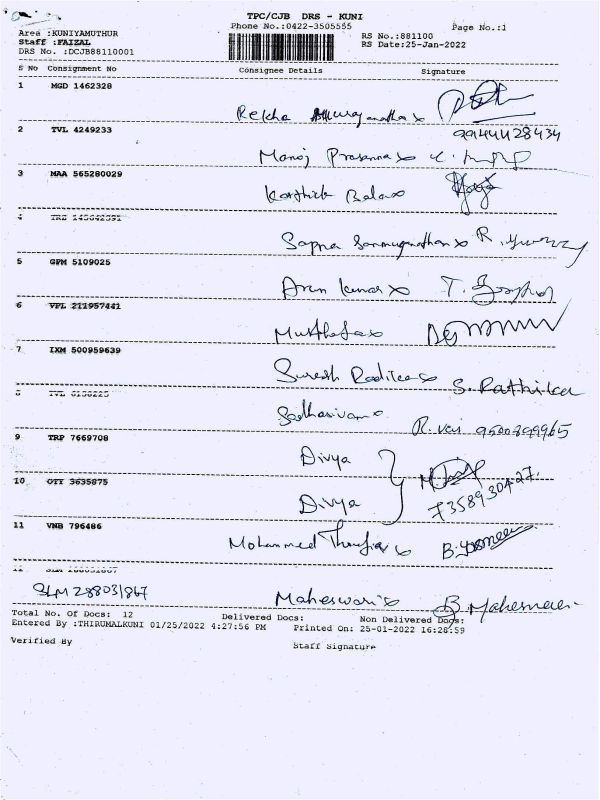 TPC/CJB DRS - KUNI
Phone No.:0422-3505555
Page No.:1
Area :KUNIYAMUTHUR
Staff :FAIZAL
DRS No. :DCJB88110001
RS No.:881100
RS Date:25-Jan-2022
S No Consignment No Consignee Details Signature
1 MGD 1462328
Rekha
2 TVL 4249233
99144428434
Manoj Prasanna
3 MAA 565280029
Karthick Bala
4
Sapna Sanmuganathan R.
5 GPM 5109025
Arun Kumar T.
6 VPL 211957441
Musthafa
7 IXM 500959639
Suresh Radika S. Rathika
8 TVL 6156225
Sadhasivam R. 9500399965
9 TRP 7669708
Divya
10 OTY 3635875
Divya 7358930427.
11 VNB 796486
Mohammed B.
12
SLM 288031867 Maheswari B. Maheswari
Total No. Of Docs: 12 Delivered Docs: Non Delivered Docs:
Entered By :THIRUMALKUNI 01/25/2022 4:27:56 PM Printed On: 25-01-2022 16:28:59
Verified By Staff Signature